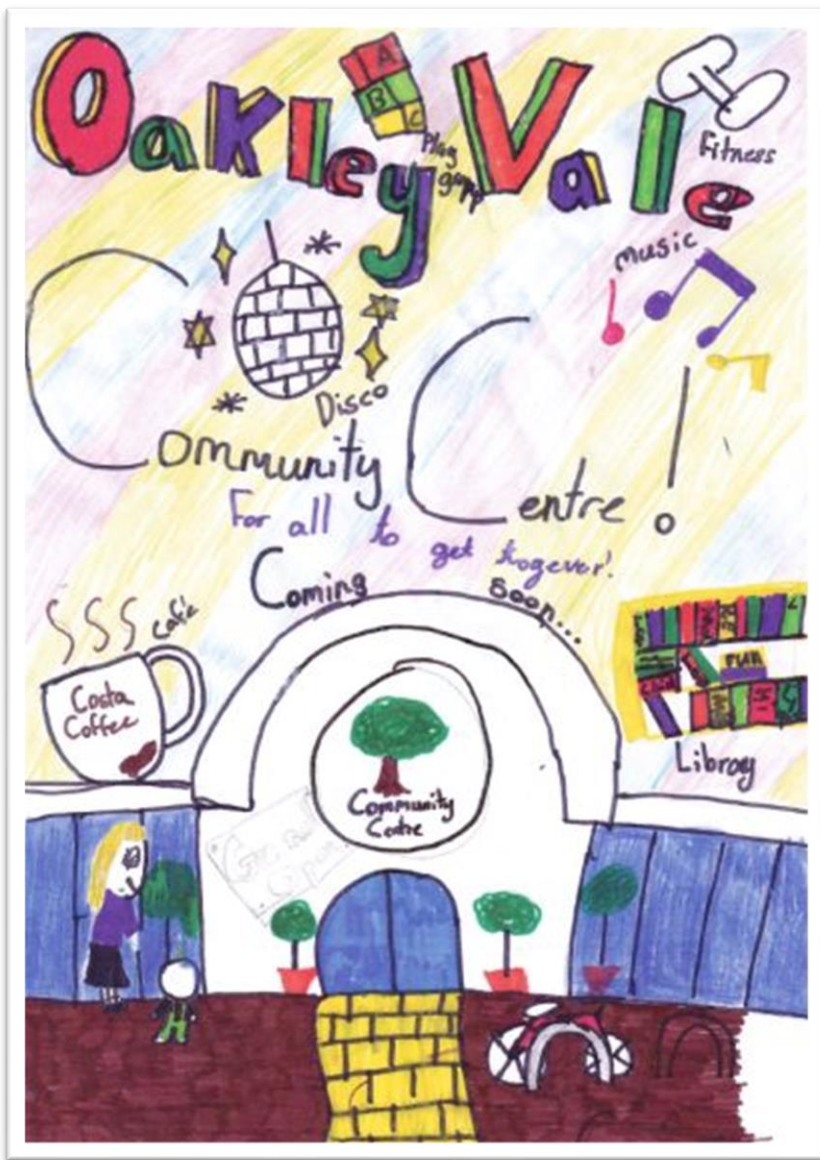 Oakley Vale
A
B
C
Play
group
Fitness
Music
Disco
Community Centre!
For all to get togever!
Coming Soon...
Café
Costa
Coffee
FUN
Library
Community
Centre